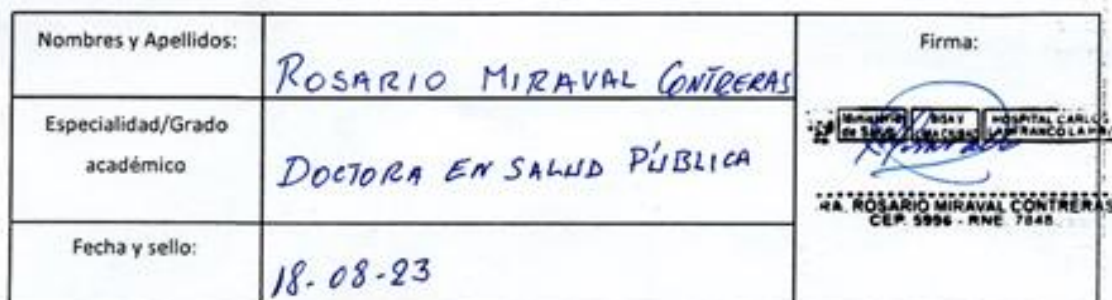 Nombres y Apellidos:
ROSARIO MIRAVAL CONTRERAS
Firma:
Especialidad/Grado
académico
DOCTORA EN SALUD PÚBLICA
Ministerio
de Salud
HOSPITAL CARLOS
LANFRANCO LA HOZ
RA. ROSARIO MIRAVAL CONTRERAS
CEP. 5996 - RNE. 7848
Fecha y sello:
18-08-23